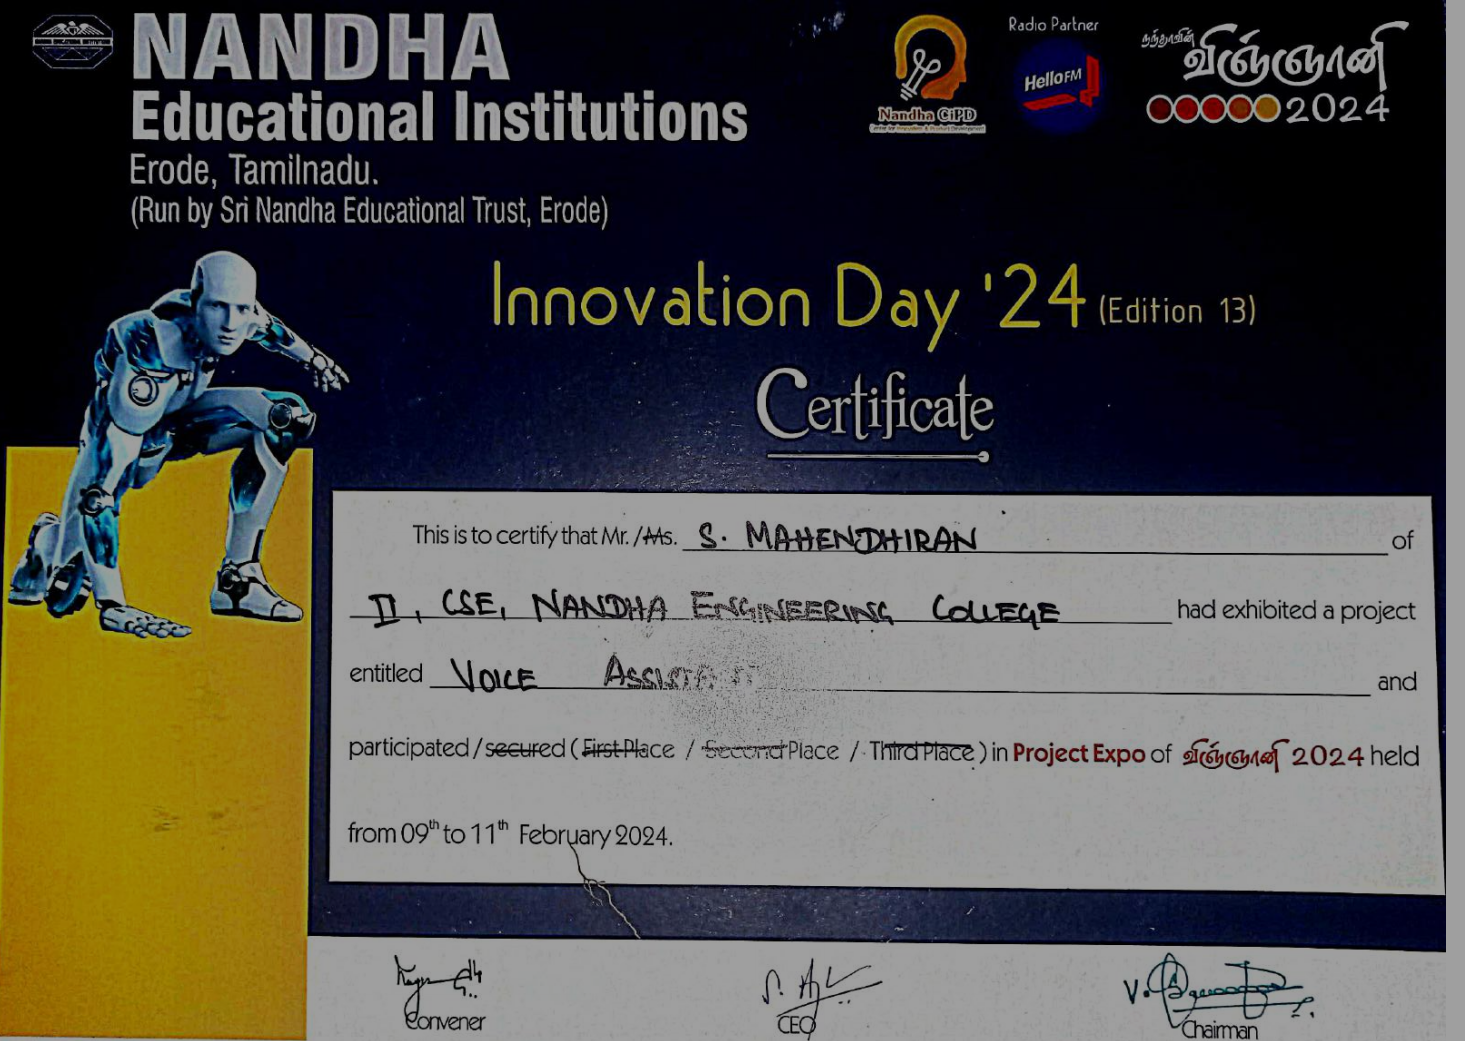 NANDHA
Educational Institutions
Erode, Tamilnadu.
(Run by Sri Nandha Educational Trust, Erode)
Nandha CiPD
Center for Innovation & Product Development
Radio Partner
Hello FM
நந்தாவின்
விஞ்ஞானி
2024
Innovation Day '24 (Edition 13)
Certificate
This is to certify that Mr. /Ms. S. MAHENDHIRAN of
II, CSE, NANDHA ENGINEERING COLLEGE had exhibited a project
entitled VOICE ASSISTANT and
participated / secured ( First Place / Second Place / Third Place ) in Project Expo of விஞ்ஞானி 2024 held
from 09th to 11th February 2024.
Convener
CEO
Chairman